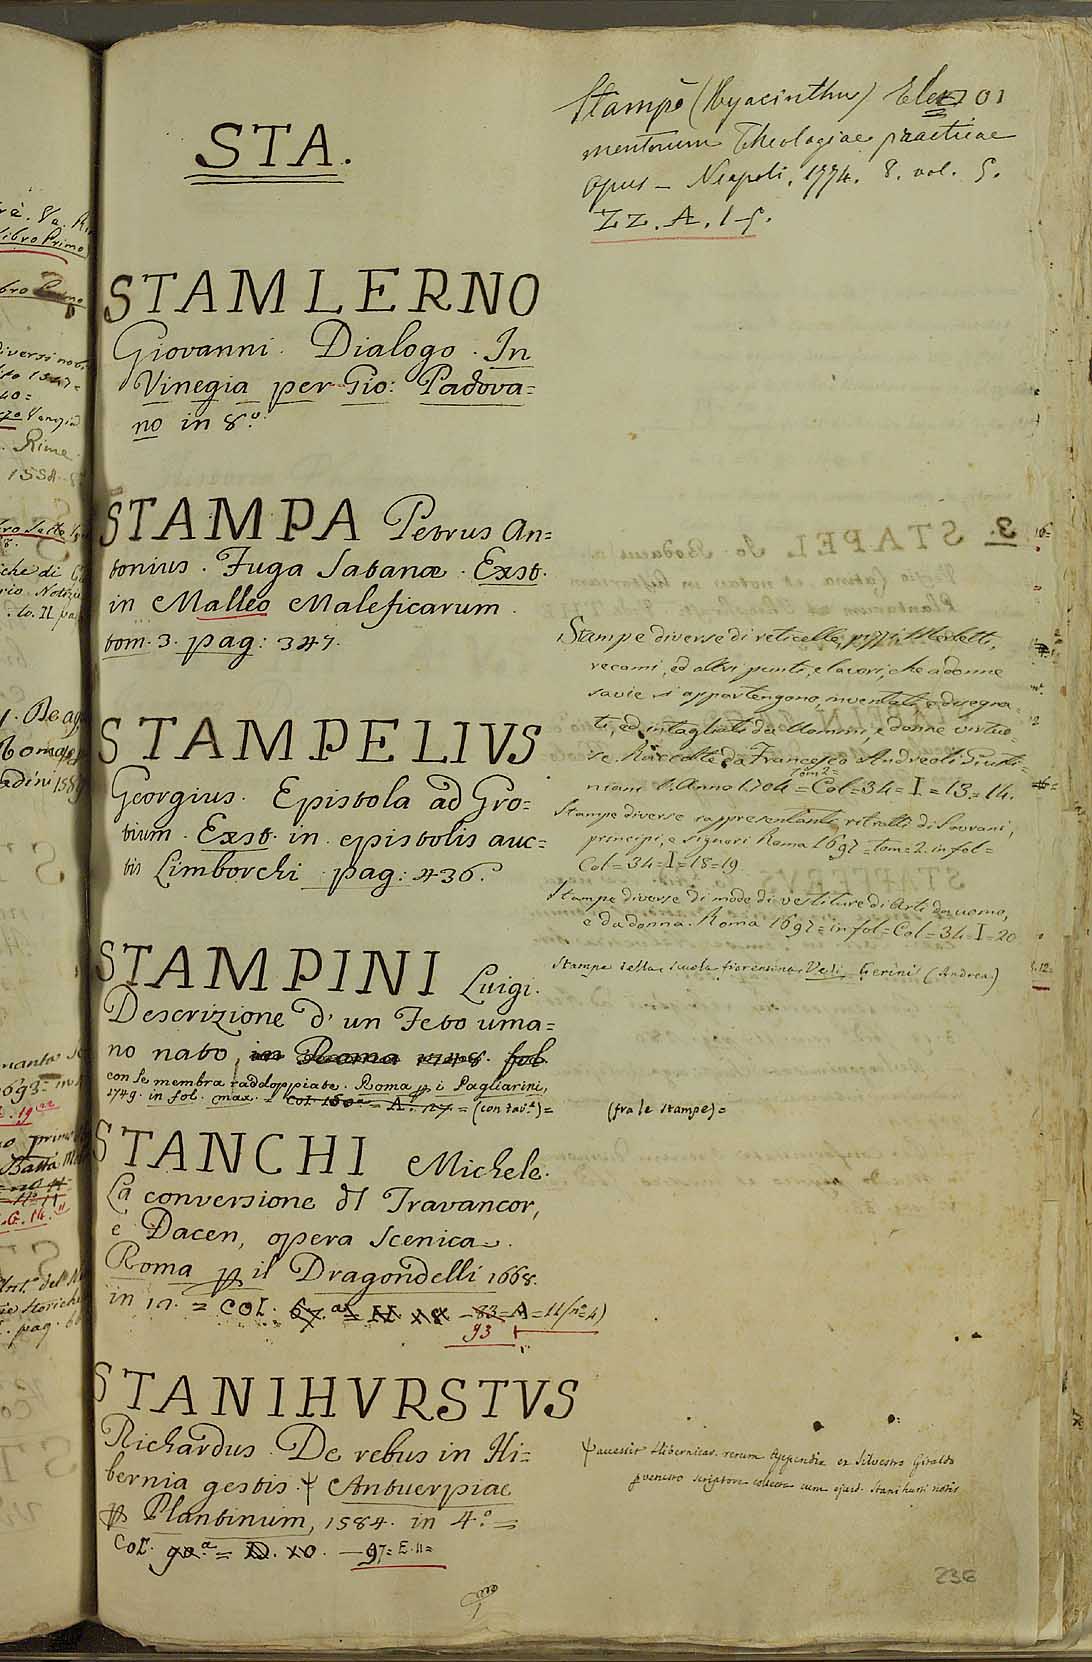 STA.
STAMLERNO
Giovanni. Dialogo. In
Vinegia per Gio: Padova=
no in 8.o
STAMPA Petrus An=
tonius. Fuga Satanæ. Exst.
in Malleo Maleficarum.
tom. 3. pag: 347.
STAMPELIVS
Georgius. Epistola ad Gro=
tium. Exst. in epistolis auc=
tis Limborchi pag: 436.
STAMPINI Luigi.
Descrizione d' un Feto uma=
no nato, in Roma 1748. fol
con se membra raddoppiate. Roma p i Pagliarini,
1749. in fol. max. = Col. 150a = A. 27. = (con tav.e) =
(fra le stampe) =
STANCHI Michele.
La conversione dl Travancor,
e Dacen, opera scenica.
Roma p il Dragondelli 1668.
in 12. = Col. 67.a = H 18 - 83 = A = 11 (n.o 4)
93
STANIHVRSTVS
Richardus. De rebus in Hi=
bernia gestis. Antuerpiae
p Plantinum, 1584. in 4.o =
Col. 90.a = D. 10. — 97 = E. 11 =
Stampè (Hyacinthus) Ele
mentorum Theologiae practicae
Opus - Neapoli. 1774. 8. vol. 5.
ZZ. A. 1-5.
Stampe diverse di reticelle, pizzi, Merletti,
recami, ed altri punti, e lavori, che a donne
savie si appartengono, inventati, e disegna=
ti, ed intagliati da Uomini, e donne virtuo=
se. Raccolte da Francesco Andreoli Giusti=
niani l'Anno 1704 = tom 2 = Col = 34 = I = 13 = 14.
Stampe diverse rappresentanti ritratti di Sovrani,
principi, e signori Roma 1697 = tom = 2. in fol =
Col = 34 = I = 18 = 19
Stampe diverse di mode di vestiture di Arti da uomo,
e da donna. Roma 1697 = in fol = Col = 34 = I = 20
Stampe della scuola fiorentina Vedi Gerini (Andrea)
accessit Hibernicar. rerum Appendix ex Silvestro Giraldo
scriptore collecta cum ejusd. Stanihursti notis
236